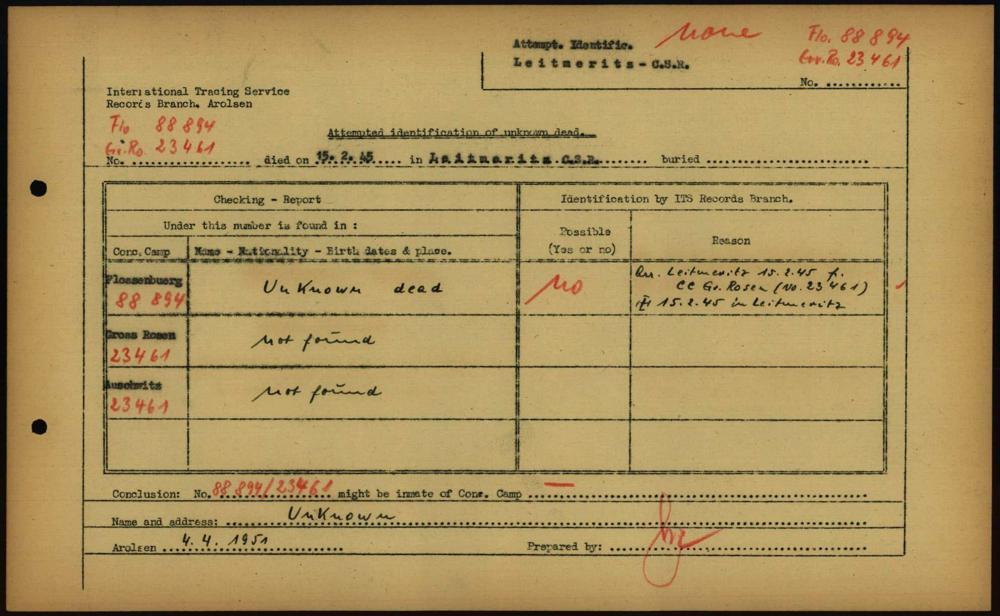 Attempt. Identific. none Flo. 88 894
Leitmerits - C.S.R. Gr.Ro. 23 461
No. ............
International Tracing Service
Records Branch, Arolsen
Flo 88 894
Gr.Ro. 23 461
Attempted identification of unknown dead.
No. .................. died on 15. 2. 45 .... in Leitmerits C.S.R. ........ buried ....................
Checking - Report
Identification by ITS Records Branch.
Under this number is found in :
Possible
(Yes or no)
Reason
Conc. Camp
Name - Nationality - Birth dates & place.
Flossenbuerg
88 894
Unknown dead
no
Arr. Leitmeritz 15.2.45 f.
CC Gr. Rosen (No. 23 461)
15.2.45 in Leitmeritz
Gross Rosen
23461
not found
Auschwitz
23461
not found
Conclusion: No. 88 894/23461 might be inmate of Conc. Camp ... — ...
Name and address: ....... Unknown .......
Arolsen 4. 4. 1951 ..........
Prepared by: ..........